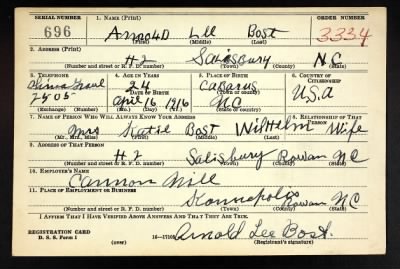 SERIAL NUMBER 1. NAME (Print) ORDER NUMBER
696 Arnold Lee Bost 3334
(First) (Middle) (Last)
2. ADDRESS (Print)
#2 Salisbury NC
(Number and street or R. F. D. number) (Town) (County) (State)
3. TELEPHONE 4. AGE IN YEARS 5. PLACE OF BIRTH 6. COUNTRY OF CITIZENSHIP
China Grove 24 Cabarus
DATE OF BIRTH (Town or county)
2505 April 16 1916 NC U.S.A
(Exchange) (Number) (Mo.) (Day) (Yr.) (State or country)
7. NAME OF PERSON WHO WILL ALWAYS KNOW YOUR ADDRESS 8. RELATIONSHIP OF THAT PERSON
Mrs Katie Bost Wilhelm Wife
(Mr., Mrs., Miss) (First) (Middle) (Last)
9. ADDRESS OF THAT PERSON
#2 Salisbury Rowan NC
(Number and street or R. F. D. number) (Town) (County) (State)
10. EMPLOYER'S NAME
Cannon Mill
11. PLACE OF EMPLOYMENT OR BUSINESS
Kannapolis Rowan NC
(Number and street or R. F. D. number) (Town) (County) (State)
I AFFIRM THAT I HAVE VERIFIED ABOVE ANSWERS AND THAT THEY ARE TRUE.
REGISTRATION CARD
D. S. S. Form 1 (over) 16—17105 Arnold Lee Bost.
(Registrant's signature)